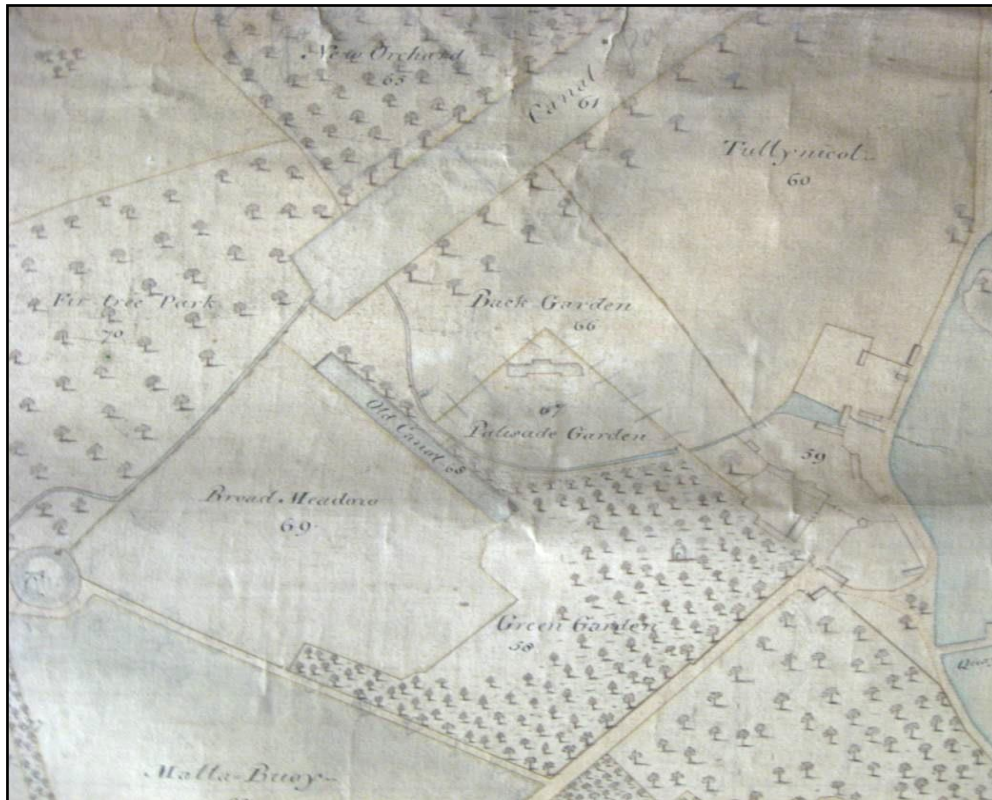 New Orchard
65
Canal
61
Tullynicol
60
Fir tree Park
70
Back Garden
66
67
Palisade Garden
59
Old Canal 68
Broad Meadow
69
Green Garden
58
Malla-Buoy